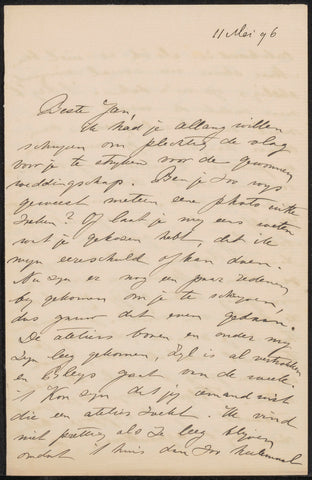 11 Mei 96
Beste Jan,
Ik had je allang willen
schrijven om plechtig de vlag
voor je te strijken voor de gewonnen
weddingschap. Ben je zoo wijs
geweest meteen eene photo uit te
zoeken? Of laat je mij eens weten
wat je gekozen hebt, dat ik
mijn eereschuld af kan doen.
Nu zijn er nog een paar redenen
bij gekomen om je te schrijven,
dus gauw dat even gedaan.
De ateliers boven en onder mij
zijn leeg gekomen, Zijl is al vertrokken
en Bleys gaat van de week.
't Kon zijn dat jij iemand wist
die een atelier zocht. Ik vind
niet prettig als ze leeg blijven
omdat 't huis dan zoo helemaal